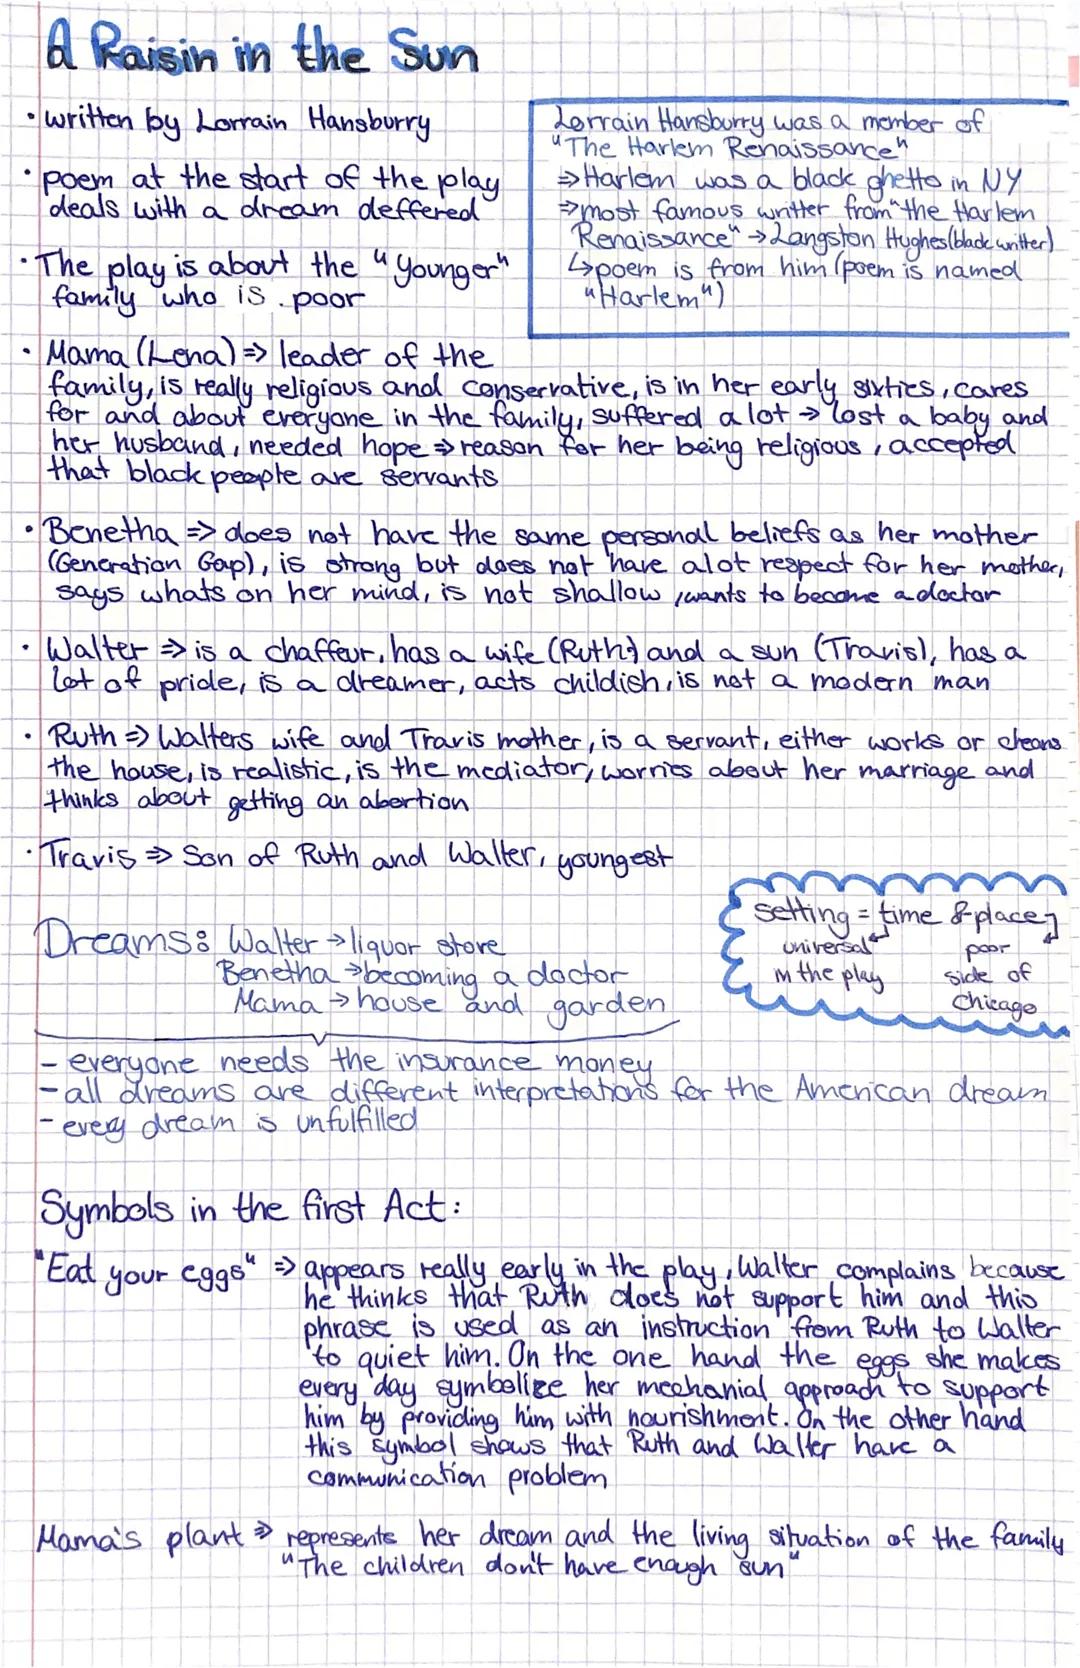 A Raisin in the Sun
• written by Lorrain Hansburry
• poem at the start of the play
deals with a dream deffered
• The play is about the "Younger"
family who is . poor
Lorrain Hansburry was a member of
"The Harlem Renaissance"
⇒ Harlem was a black ghetto in NY
⇒ most famous writter from "the Harlem
Renaissance" → Langston Hughes (black writter)
↳ poem is from him (poem is named
"Harlem")
• Mama (Lena) ⇒ leader of the
family, is really religious and conservative, is in her early sixties, cares
for and about everyone in the family, suffered a lot → lost a baby and
her husband, needed hope ⇒ reason for her being religious, accepted
that black people are servants
• Benetha ⇒ does not have the same personal beliefs as her mother
(Generation Gap), is strong but does not have alot respect for her mother,
says whats on her mind, is not shallow, wants to become a doctor
• Walter ⇒ is a chaffeur, has a wife (Ruth) and a sun (Travis), has a
lot of pride, is a dreamer, acts childish, is not a modern man
• Ruth ⇒ Walters wife and Travis mother, is a servant, either works or cleans
the house, is realistic, is the mediator, worries about her marriage and
thinks about getting an abortion
• Travis ⇒ Son of Ruth and Walter, youngest
setting = time & place
universal poor
in the play side of
Chicago
Dreams: Walter → liquor store
Benetha → becoming a doctor
Mama → house and garden
- everyone needs the insurance money
- all dreams are different interpretations for the American dream
- every dream is unfulfilled
Symbols in the first Act:
"Eat your eggs" ⇒ appears really early in the play, Walter complains because
he thinks that Ruth does not support him and this
phrase is used as an instruction from Ruth to Walter
to quiet him. On the one hand the eggs she makes
every day symbolize her mechanial approach to support
him by providing him with nourishment. On the other hand
this symbol shows that Ruth and Walter have a
communication problem
Mama's plant ⇒ represents her dream and the living situation of the family
"The children don't have enough sun"